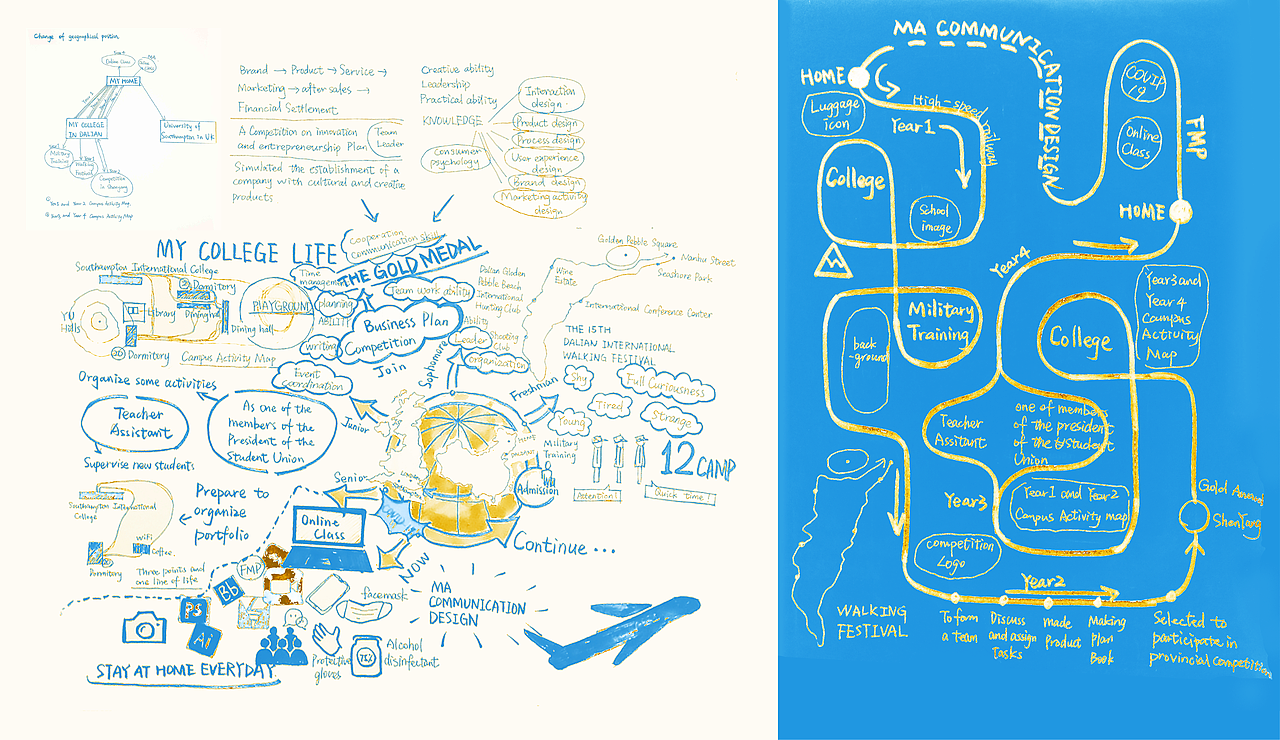 Change of geographical position
Online Class
MY HOME
MY COLLEGE
IN DALIAN
University of
Southampton in UK
Military
Training
Walking
Festival
Competition
in Shenyang
Year1 and Year 2 Campus Activity Map.
Year3 and Year 4 Campus Activity Map
Brand → Product → Service →
Marketing → after sales →
Financial Settlement
A Competition on innovation
and entrepreneurship Plan
Team
Leader
Simulated the establishment of a
company with cultural and creative
products
Creative ability
Leadership
Practical ability
KNOWLEDGE
Consumer
psychology
Interaction
design
Product design
Process design
User experience
design
Brand design
Marketing activity
design
MY COLLEGE LIFE
cooperation
communication skill
THE GOLD MEDAL
Time
management
planning
ABILITY
writing
Team work ability
Business Plan
Competition
Join
Event
Coordination
Ability
Leader
organization
Sophomore
Southampton International College
YU
Hills
Library
Dormitory
Dining hall
PLAYGROUND
Dining hall
Dormitory
Campus Activity Map
Golden Pebble Square
Manhu Street
Seashore Park
Wine
Estate
International Conference Center
Dalian Gloden
Pebble Beach
International
Hunting Club
Shooting
Club
THE 15TH
DALIAN INTERNATIONAL
WALKING FESTIVAL
Organize some activities
Teacher
Assistant
As one of the
members of the
President of the
Student Union
Supervise new students
Junior
Freshman
Shy
Tired
Young
Full Curiousness
Strange
HOME
Military
Training
Admission
Attention!
Quick time!
12 CAMP
Senior
COVID 19
Online
Class
NOW
Continue ...
Prepare to
organize
portfolio
Southampton International
College
WiFi
Coffee
Dormitory
Three points and
one line of life
FMP
Bb
PS
Ai
facemask
Protective
gloves
75%
Alcohol
disinfectant
STAY AT HOME EVERYDAY
MA
COMMUNICATION
DESIGN
MA COMMUNICATION DESIGN
HOME
Luggage
icon
High-speed railway
Year1
College
School
image
COVID
19
Online
Class
FMP
HOME
Year4
Military
Training
back
-ground
College
Year3 and
Year 4
Campus
Activity
Map
Teacher
Assitant
one of members
of the president
of the Student
Union
Year3
Year1 and Year2
Campus Activity map
Gold Award
ShenYang
competition
Logo
Year2
WALKING
FESTIVAL
To form
a team
Discuss
and assign
Tasks
made
Product
Making
Plan
Book
Selected to
participate in
provincial competition